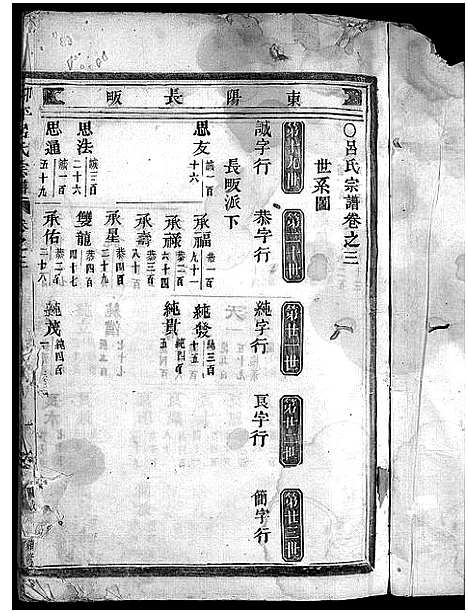 東陽長畈
〇呂氏宗譜卷之三
世系圖
第十九世
第二十世
第廿一世
第廿二世
第廿三世
誠字行
恭字行
純字行
良字行
簡字行
長畈派下
思友
誠一百十六
承福
恭一百九十一
純發
純三百十五
承祿
恭二百六十四
純貴
純四百五
承壽
恭三百八十
思法
誠三百二十六
承星
恭四百二十九
雙龍
恭四百四十七
思通
誠一百五十九
承佑
恭二百二十八
純茂
純四百一
呂氏宗譜
卷之三